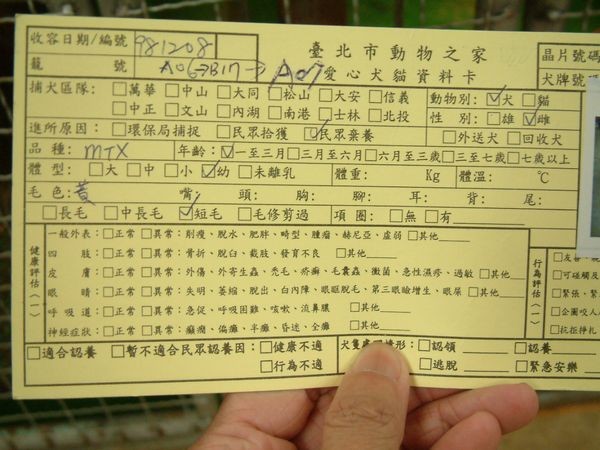 收容日期/編號 981208
臺北市動物之家
晶片號碼
籠號 A06→B17→A07
愛心犬貓資料卡
犬牌號碼
捕犬區隊: □萬華□中山□大同□松山□大安□信義
□中正□文山□內湖□南港□士林□北投
動物別: ☑犬□貓
性別: □雄☑雌
進所原因: □環保局捕捉 □民眾拾獲 ☑民眾棄養 □外送犬□回收犬
品種: MIX 年齡: ☑一至三月□三月至六月□六月至三歲□三至七歲□七歲以上
體型: □大□中□小☑幼□未離乳 體重: Kg 體溫: ℃
毛色: 黃 嘴: 頭: 胸: 腳: 耳: 背: 尾:
□長毛 □中長毛 ☑短毛 □毛修剪過 項圈: □無□有
健康評估(一)
一般外表: □正常□異常: 削瘦、脫水、肥胖、畸型、腫瘤、赫尼亞、虛弱□其他
四肢: □正常□異常: 骨折、脫臼、截肢、發育不良 □其他
皮膚: □正常□異常: 外傷、外寄生蟲、禿毛、疥癬、毛囊蟲、黴菌、急性濕疹、過敏□其他
眼睛: □正常□異常: 失明、萎縮、脫出、白內障、眼眶脫毛、第三眼瞼增生、眼屎□其他
呼吸道: □正常□異常: 急促、呼吸困難、咳嗽、流鼻膿 □其他
神經症狀: □正常□異常: 癲癇、偏癱、半癱、昏迷、全癱 □其他
行為評估(一)
□友善
□可碰觸
□緊張
□企圖咬人
□抗拒掙扎
□適合認養 □暫不適合民眾認養因: □健康不適
□行為不適
犬隻處 情形: □認領 □認養
□逃脫 □緊急安樂